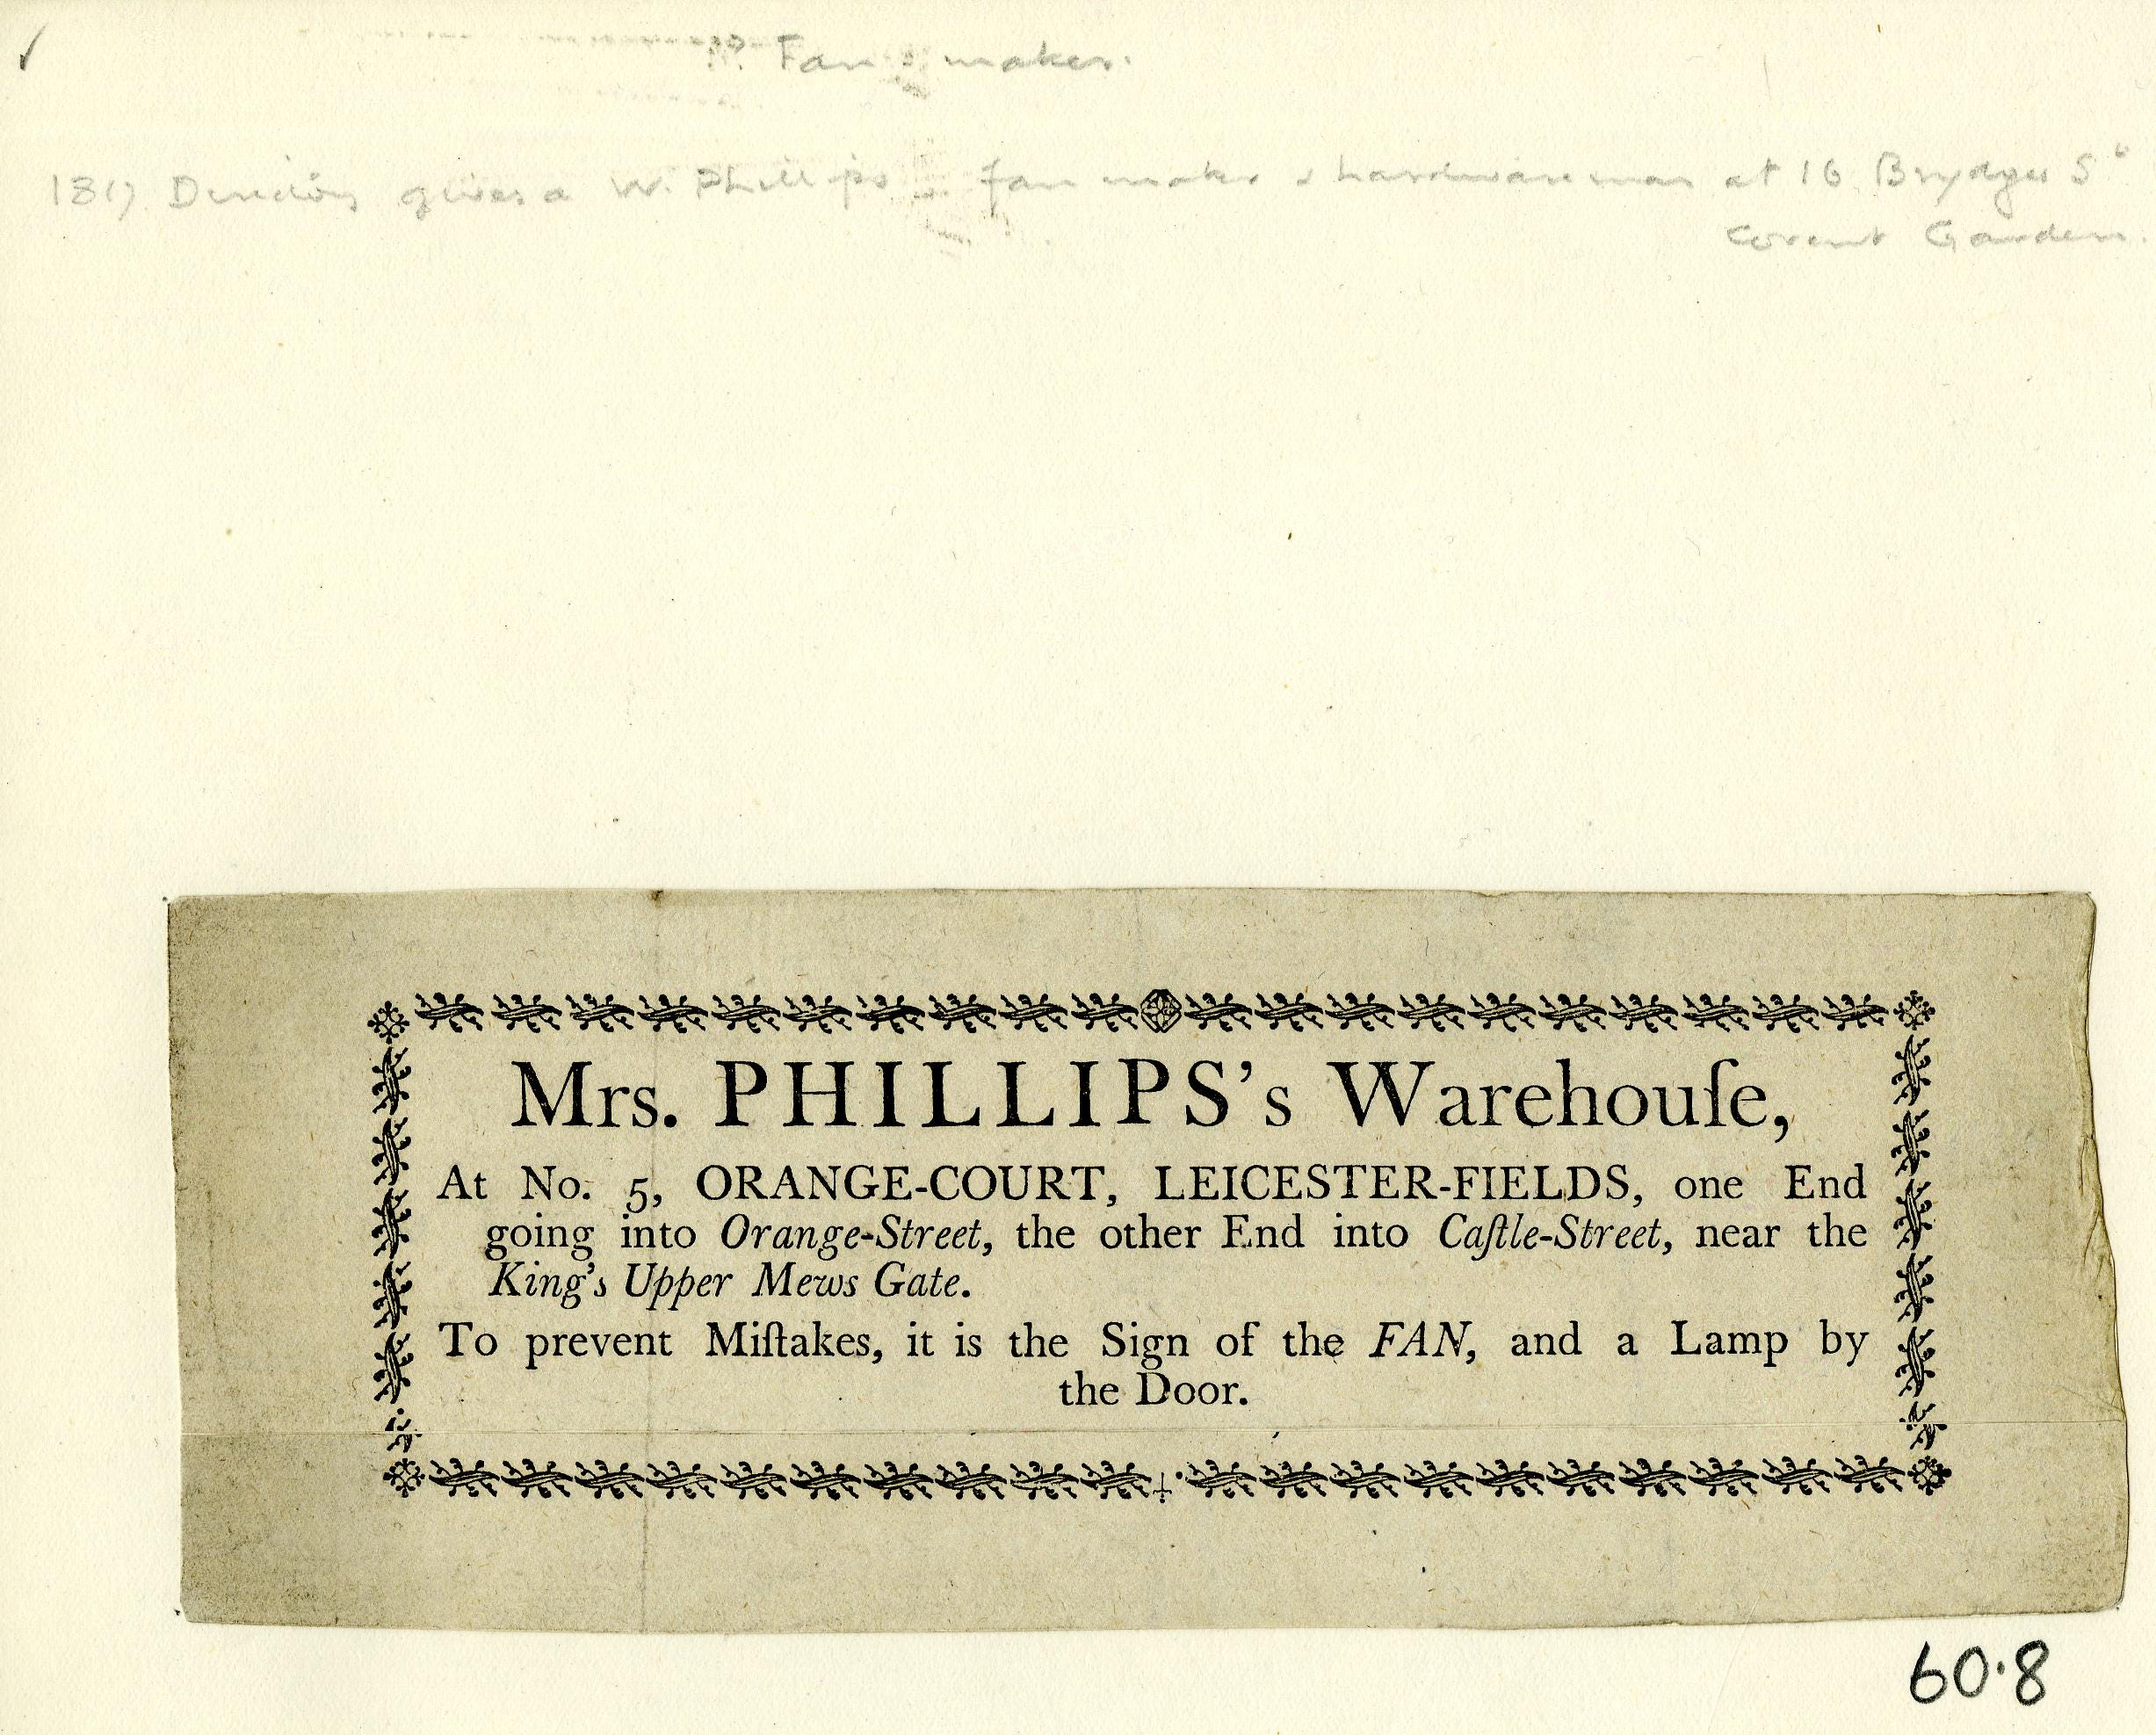 ✓
?? Fan maker.
1817 Directory gives a W. Phillips fan maker & hardwareman at 16 Brydges St
Covent Garden.
Mrs. PHILLIPS's Warehouſe,
At No. 5, ORANGE-COURT, LEICESTER-FIELDS, one End
going into Orange-Street, the other End into Caſtle-Street, near the
King's Upper Mews Gate.
To prevent Miſtakes, it is the Sign of the FAN, and a Lamp by
the Door.
60.8